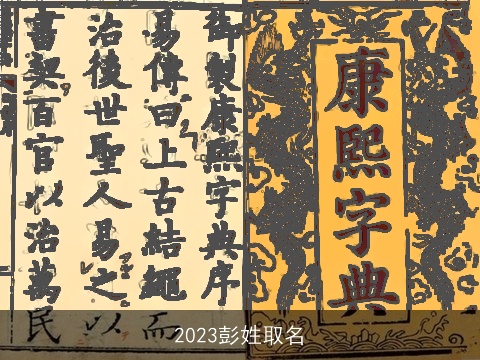 御製康熙字典序
易傳曰上古結繩而
治後世聖人易之以
書契百官以治萬民
康熙字典
2023彭姓取名